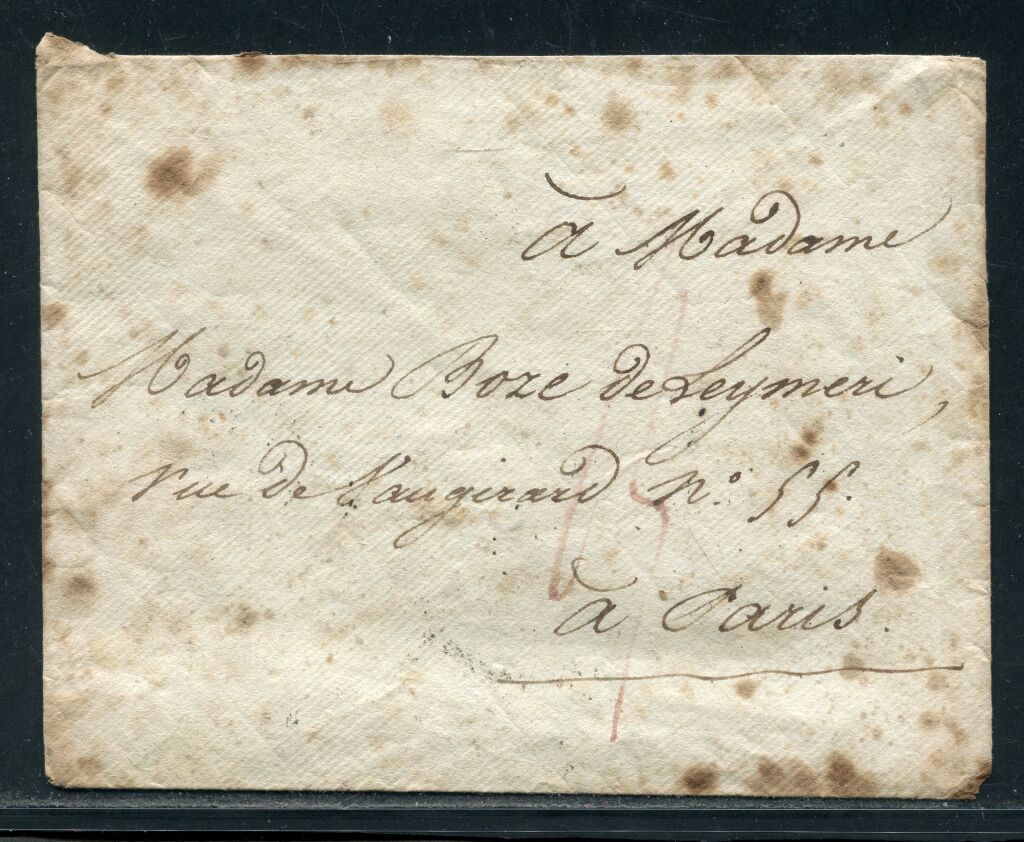 à Madame
Madame Boze de Leymeri,
rue de Vaugirard n.° 55.
à Paris.